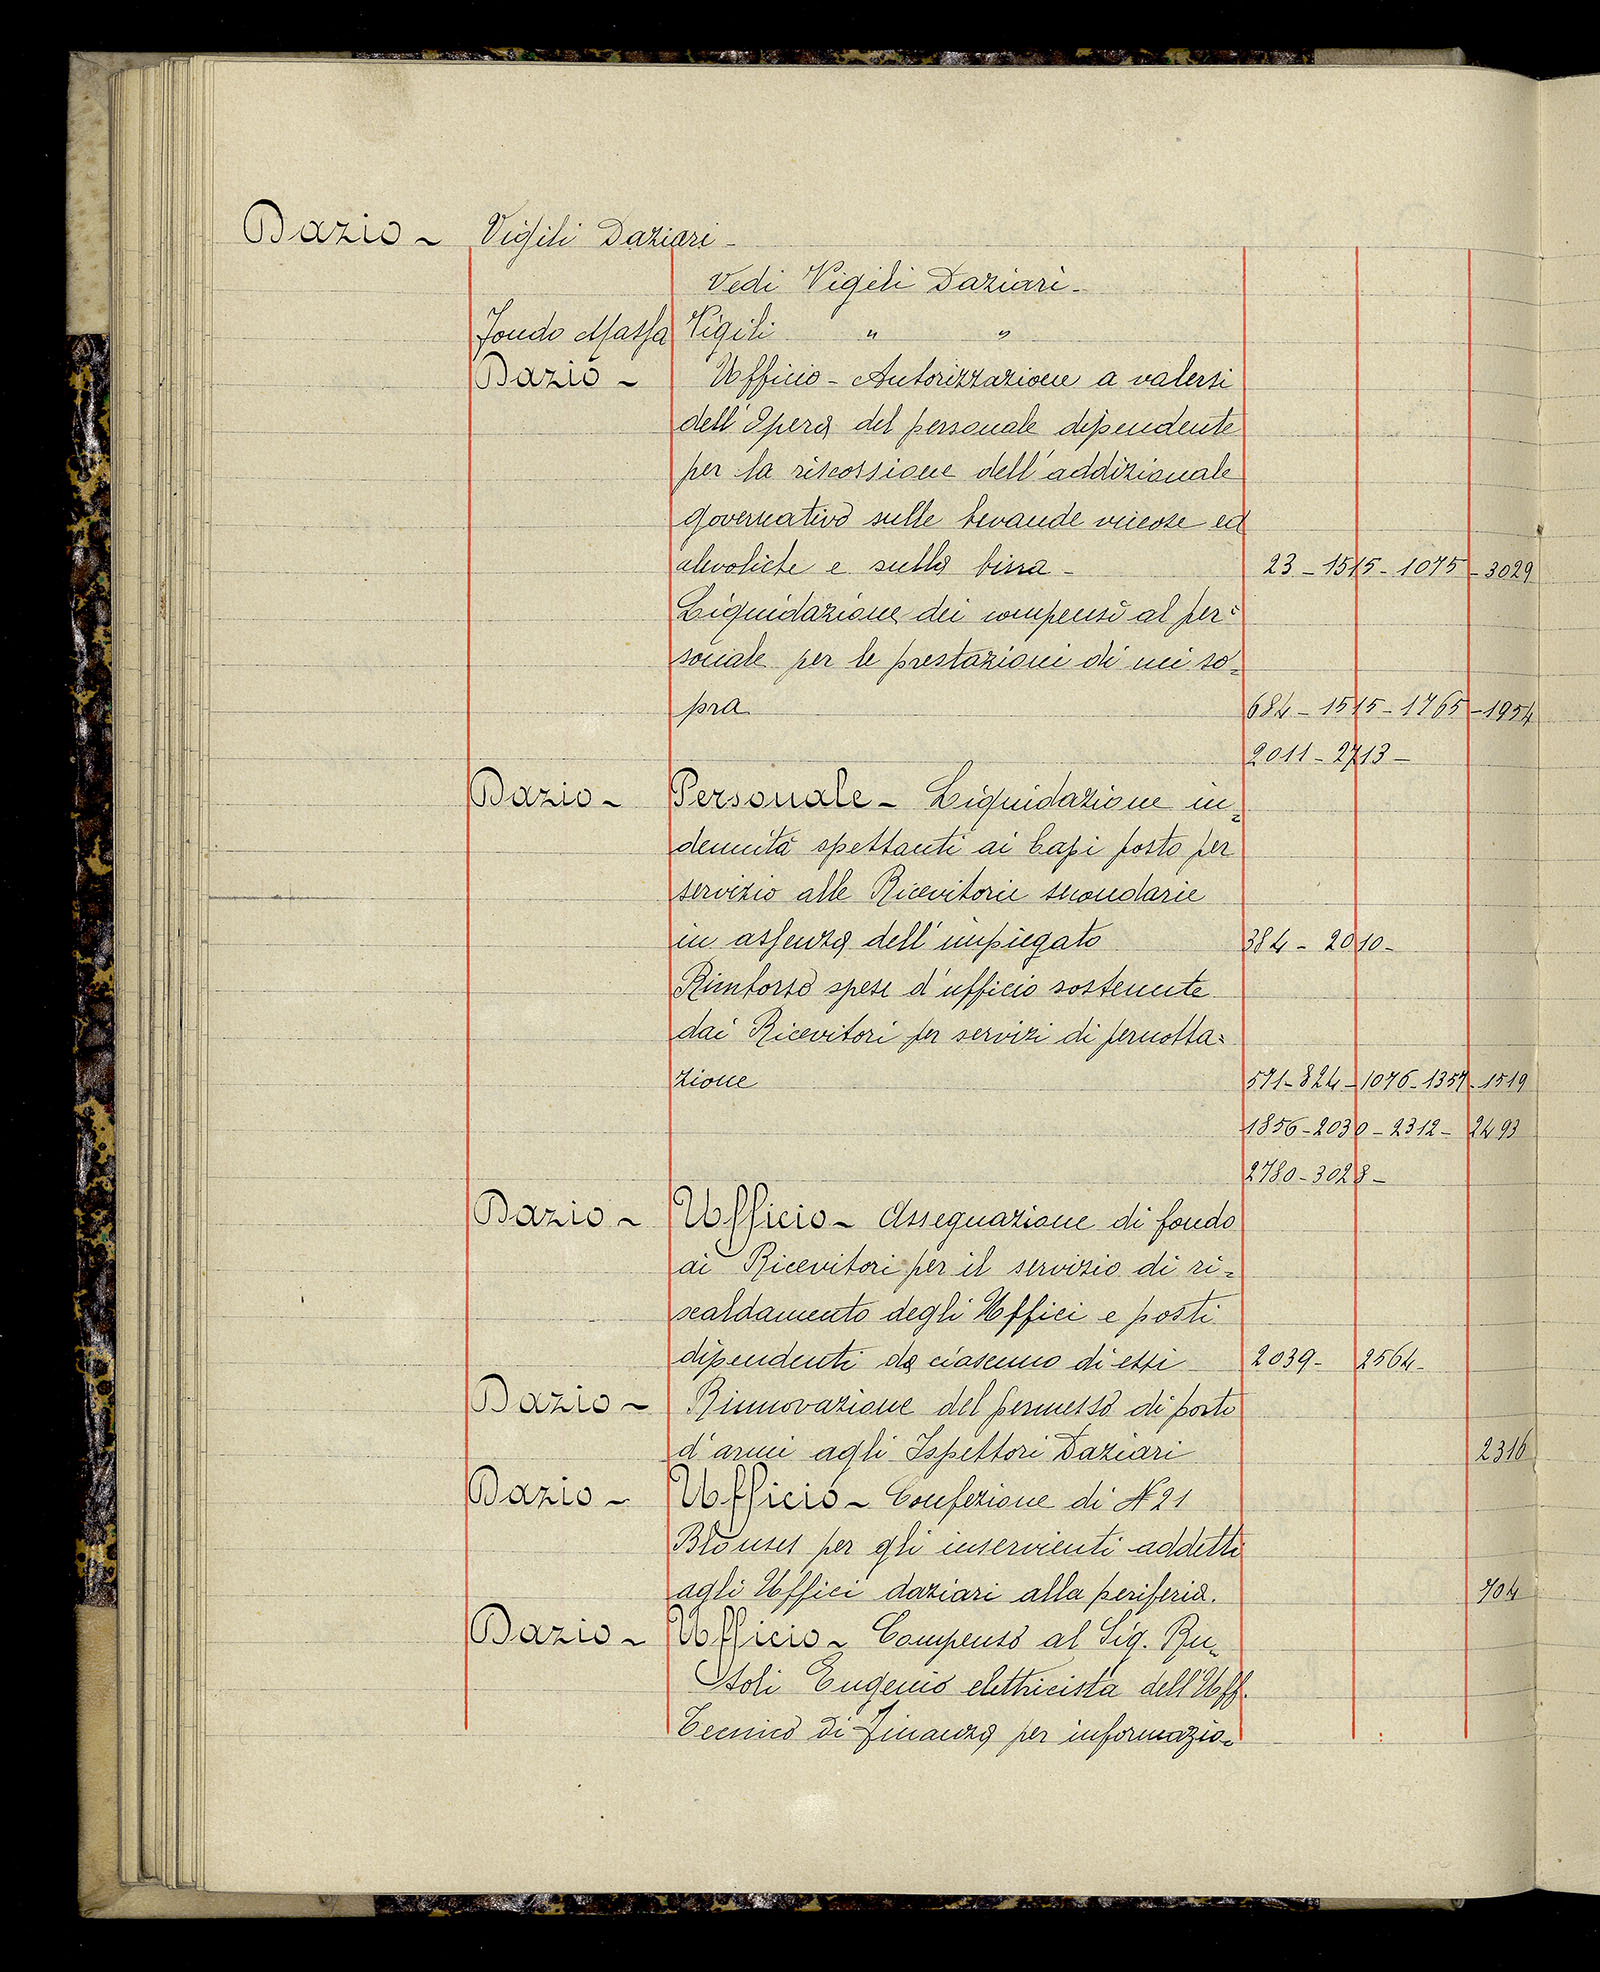 Dazio - Vigili Daziari -
Vedi Vigili Daziari -
Fondo Massa Vigili " "
Dazio - Ufficio - Autorizzazione a valersi
dell'Opera del personale dipendente
per la riscossione dell'addizionale
governativo sulle bevande vinose ed
alcooliche e sulla birra - 23 - 1515 - 1075 - 3029
Liquidazione dei compensi al per=
sonale per le prestazioni di cui so=
pra 684 - 1515 - 1765 - 1954
2011 - 2713 -
Dazio - Personale - Liquidazione in=
dennità spettanti ai Capi posto per
servizio alle Ricevitorie secondarie
in assenza dell'impiegato 384 - 2010 -
Rimborso spese d'ufficio sostenute
dai Ricevitori per servizi di pernotta=
zione 571 - 824 - 1076 - 1357 - 1519
1856 - 2030 - 2312 - 2493
2780 - 3028 -
Dazio - Ufficio - Assegnazione di fondo
ai Ricevitori per il servizio di ri=
scaldamento degli Uffici e posti
dipendenti da ciascuno di essi 2039 - 2564 -
Dazio - Rinnovazione del permesso di porto
d'armi agli Ispettori Daziari 2316
Dazio - Ufficio - Confezione di N 21
Blouses per gli inservienti addetti
agli Uffici daziari alla periferia. 704
Dazio - Ufficio - Compenso al Sig. Ru=
stoli Eugenio elettricista dell'Uff.
Tecnico di Finanza per informazio=